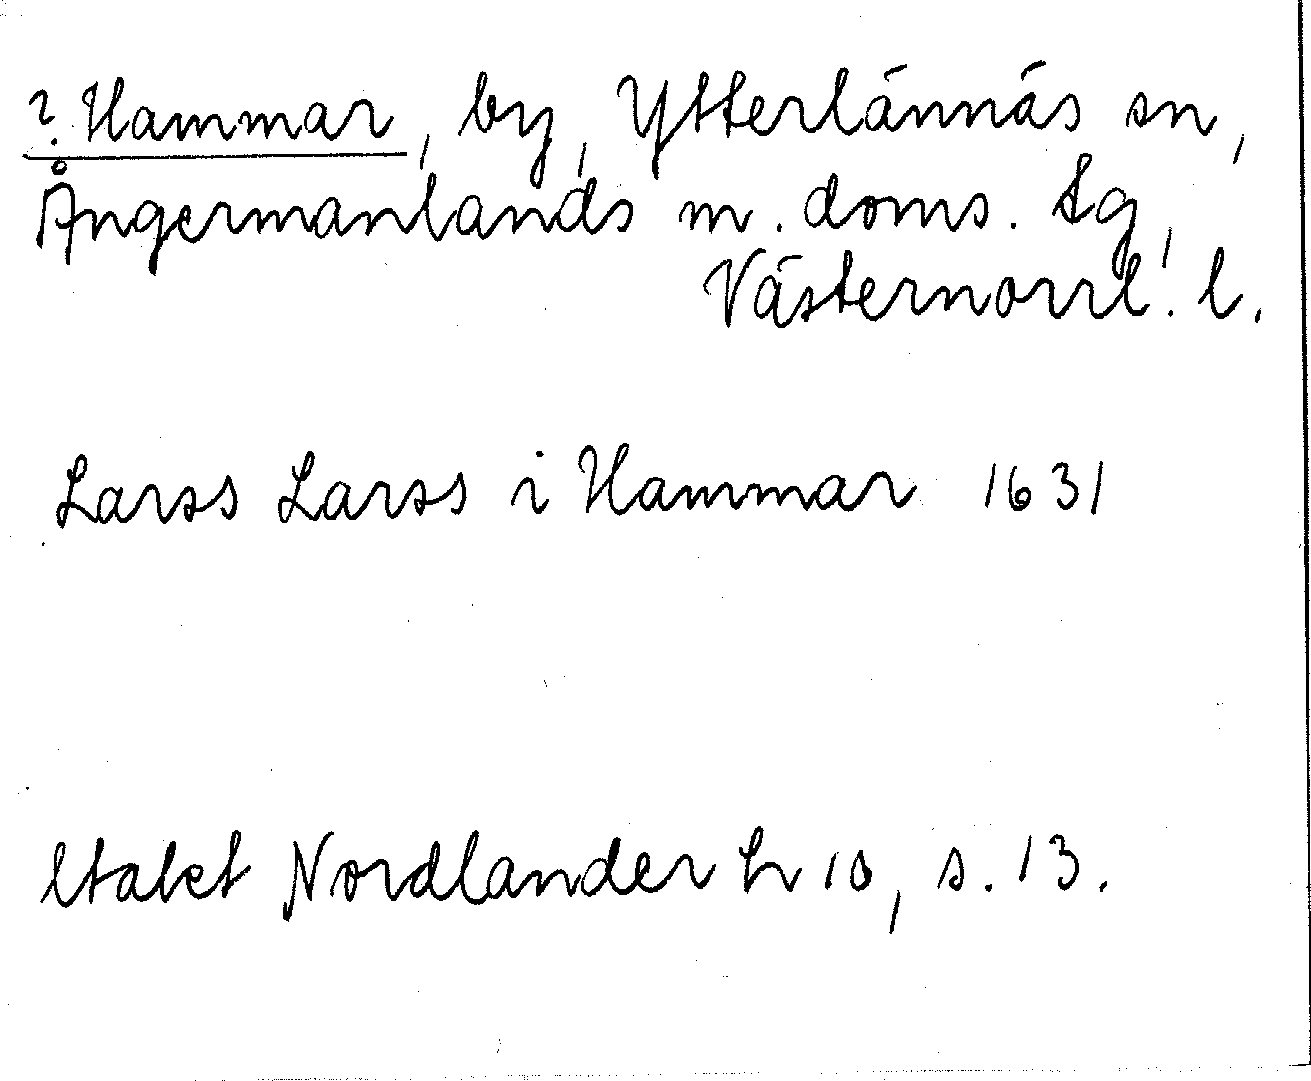 ? Hammar, by, Ytterlännäs sn,
Ångermanlands m. doms. tg,
Västernorrl. l.
Larss Larss i Hammar 1631
Nordlander h 10, s. 13.